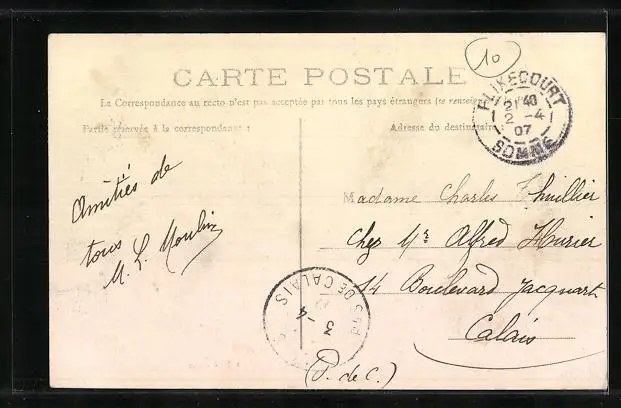 10
CARTE POSTALE
Le Correspondance au recto n'est pas acceptée par tous les pays étrangers (se renseign
Partie réservée à la correspondance :
Adresse du destinataire
FLIXECOURT
21 40
2 -4
07
SOMME
Amitiés de
tous
M. L. Moulin
Madame Charles Thuillier
chez Mr Alfred Hurier
14 Boulevard Jacquart
Calais
(P. de C.)
PAS DE CALAIS
3 -4